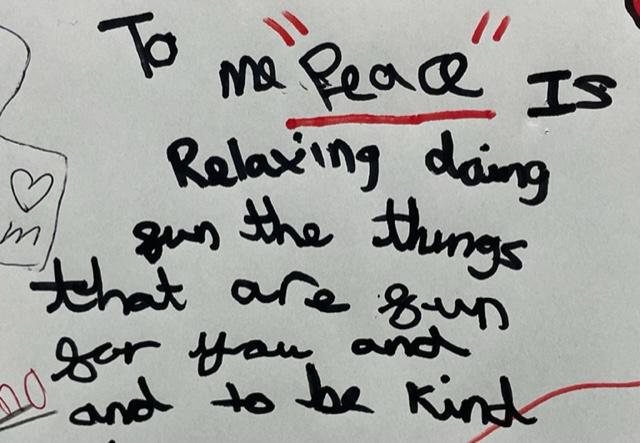 To
me "Peace" Is
Relaxing doing
fun the things
that are fun
for you and
and to be kind
m
no